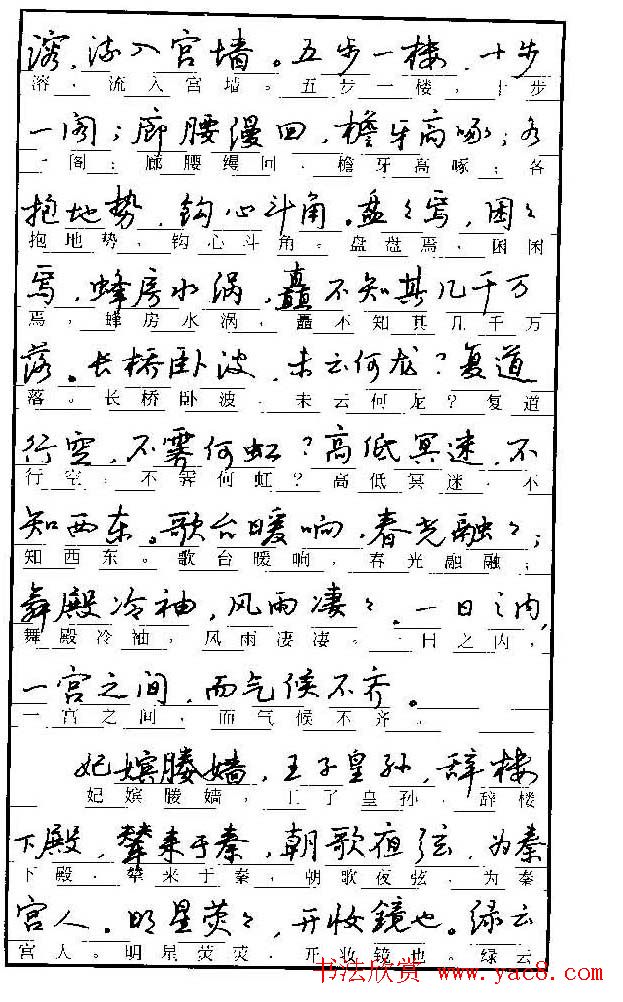 溶，流入宫墙。五步一楼，十步
溶，流入宫墙。五步一楼，十步
一阁；廊腰漫回，檐牙高啄；各
一阁；廊腰缦回，檐牙高啄；各
抱地势，钩心斗角。盘々焉，困々
抱地势，钩心斗角。盘盘焉，困困
焉，蜂房水涡，矗不知其几千万
焉，蜂房水涡，矗不知其几千万
落。长桥卧波，未云何龙？复道
落。长桥卧波，未云何龙？复道
行空，不霁何虹？高低冥迷，不
行空，不霁何虹？高低冥迷，不
知西东。歌台暖响，春光融々；
知西东。歌台暖响，春光融融；
舞殿冷袖，风雨凄々。一日之内，
舞殿冷袖，风雨凄凄。一日之内，
一宫之间，而气候不齐。
一宫之间，而气候不齐。
妃嫔媵嫱，王子皇孙，辞楼
妃嫔媵嫱，王子皇孙，辞楼
下殿，辇来于秦，朝歌夜弦，为秦
下殿，辇来于秦，朝歌夜弦，为秦
宫人。明星荧々，开妆镜也。绿云
宫人。明星荧荧，开妆镜也。绿云
书法欣赏 www.yac8.com